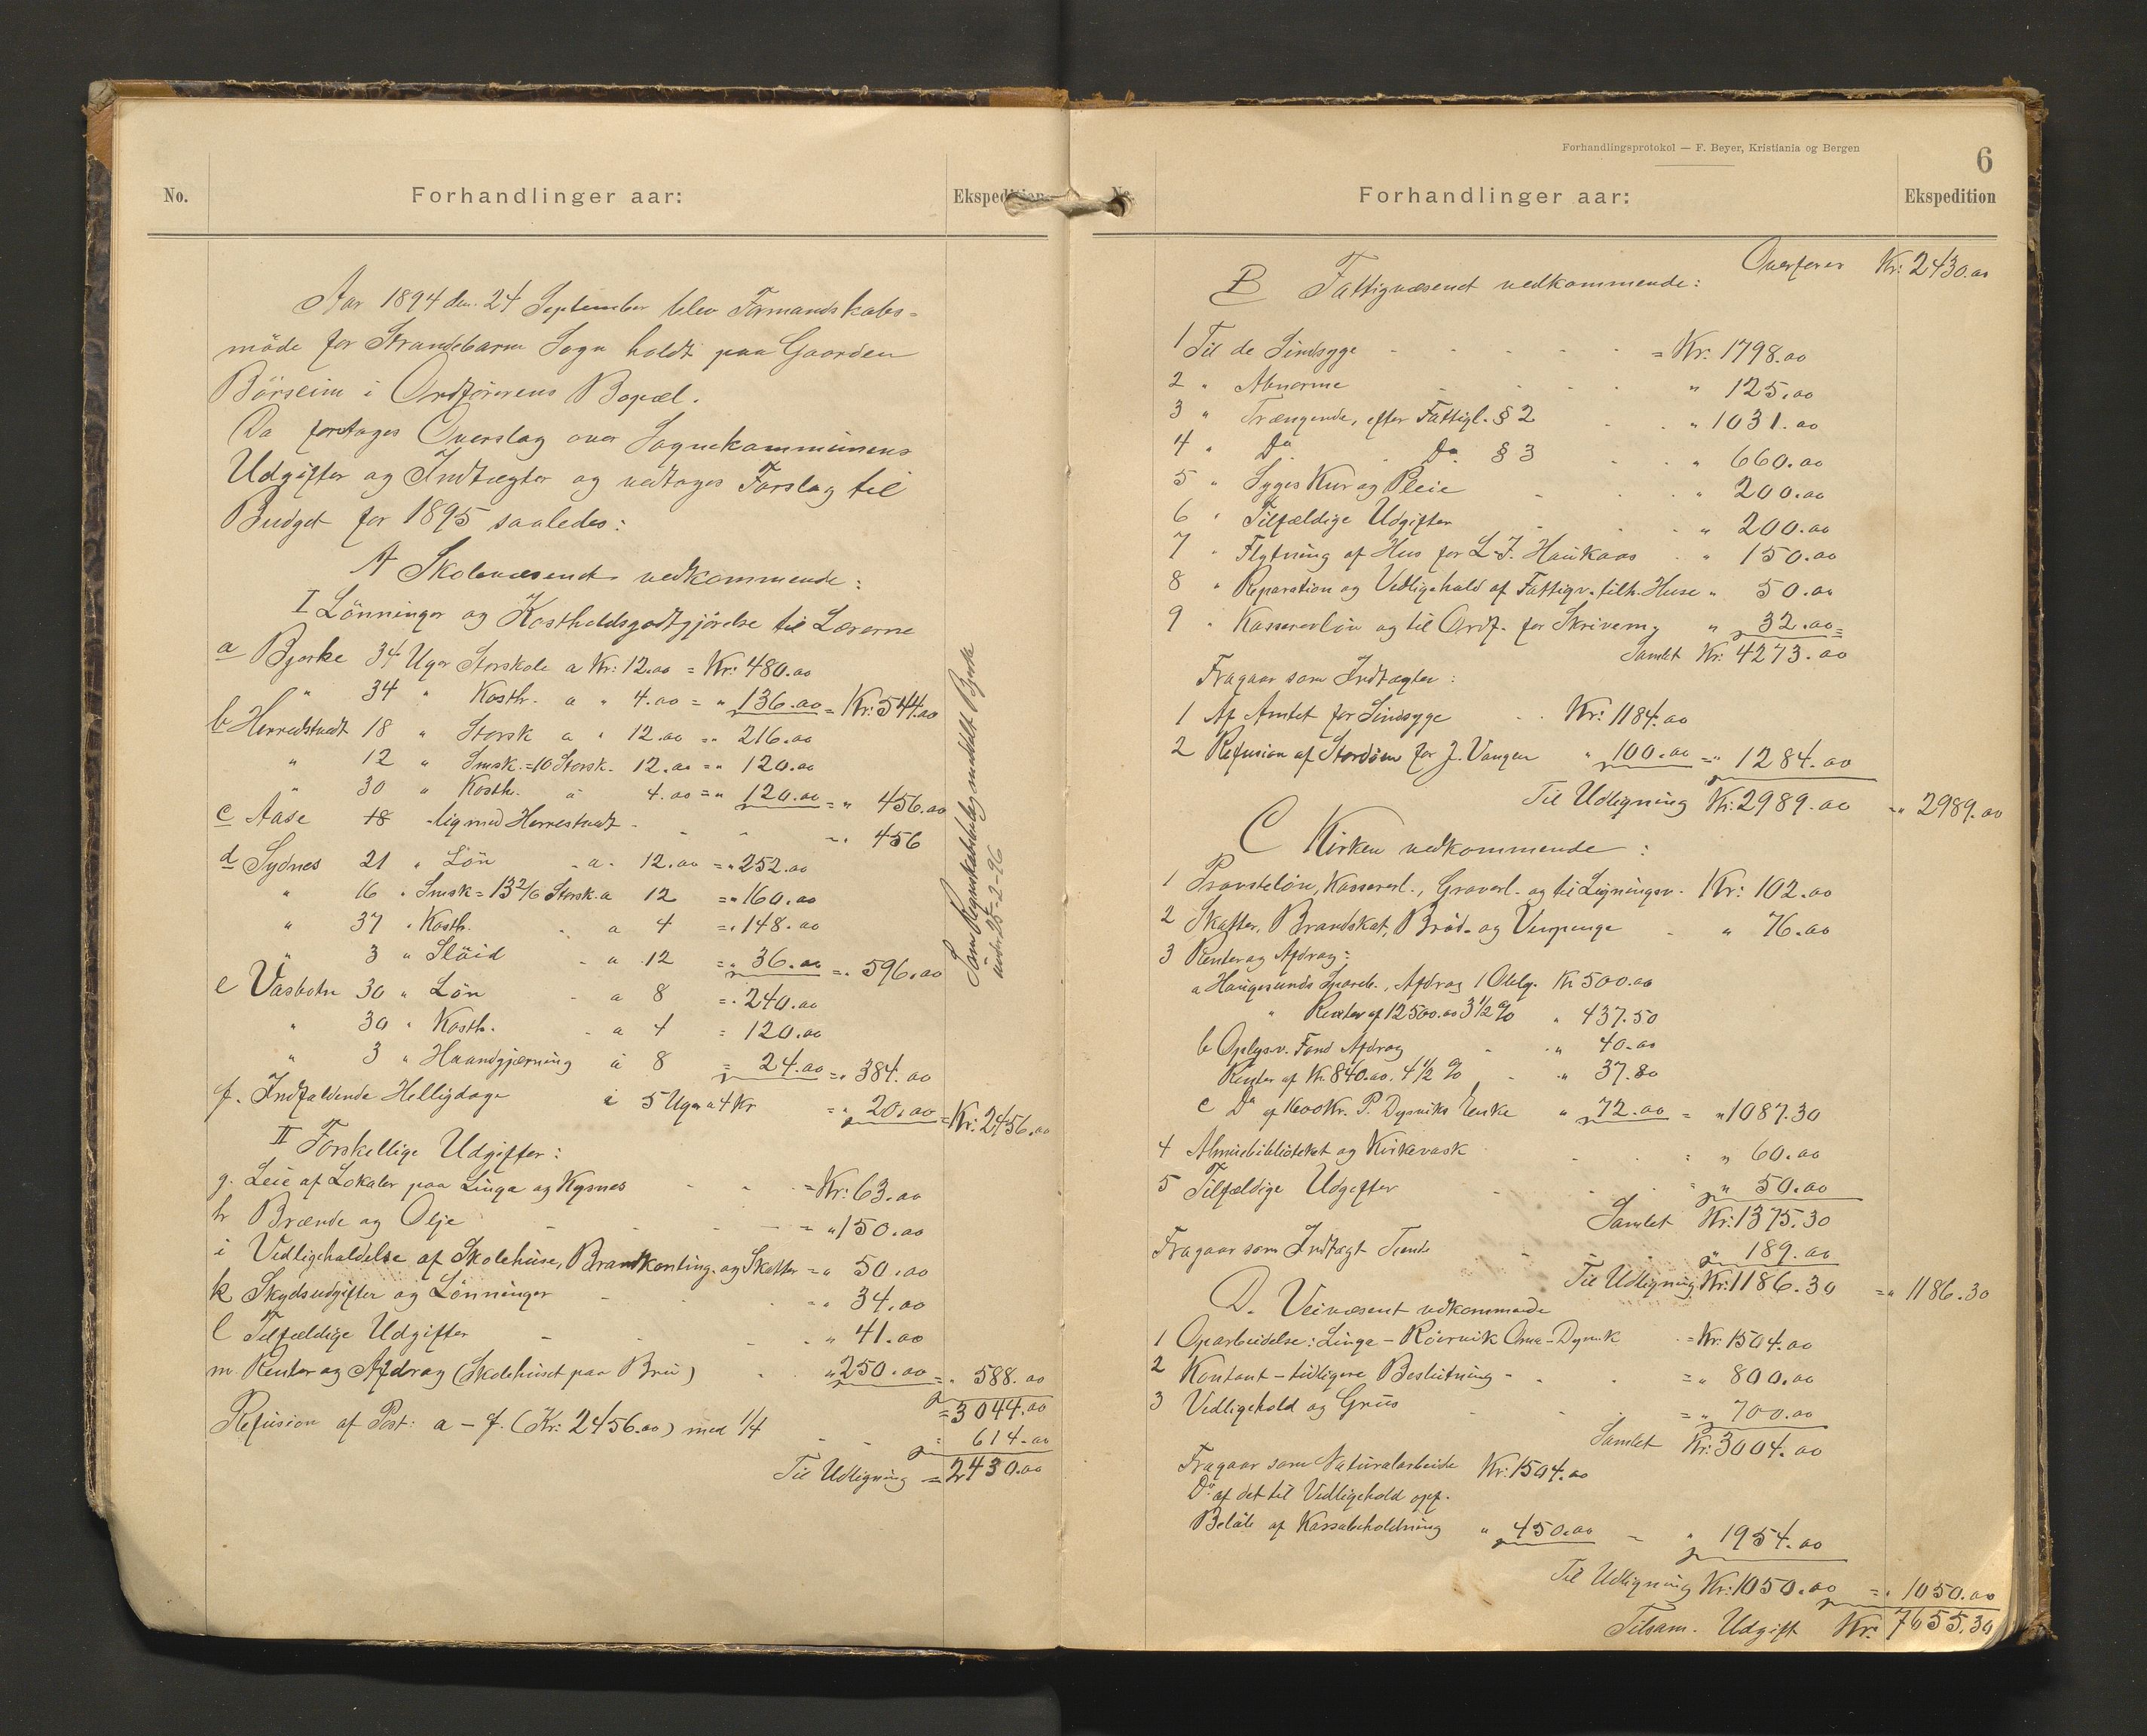 No.
Forhandlinger aar:
Ekspedition
Aar 1894 den 24 September blev Formandskabs=
möde for Strandebarm Sogn holdt paa Gaarden
Börseim i Ordförerens Bopæl.
Da foretages Overslag over Sognekommunens
Udgifter og Indtægter og vedtoges Forslag til
Budget for 1895 saaledes:
A Skolevæsenet vedkommende:
I Lönninger og Kostholdsgodtgjörelse til Lærerne
a Bjerke 34 Uger Storskole a Kr: 12.00 = Kr: 480.00
" 34 " Kosth. a " 4.00 = " 136.00 = Kr: 544.00
b Herrestvedt 18 " Storsk a " 12.00 = " 216.00
" 12 " Smsk.=10 Storsk. 12.00 = " 120.00
" 30 " Kosth. a 4.00 = " 120.00 = " 456.00
c Aase 18 lig med Herrestvedt - - - = " 456
d Sydnes 21 " Lön - a - 12.00 = " 252.00
" 16 " Smsk = 13 2/6 Storsk. a 12 = " 160.00
" 37 " Kosth. - a 4 = " 148.00
" 3 " Slöid - a 12 = " 36.00 = " 596.00
e Vasbotn 30 " Lön - a 8 = " 240.00
" 30 " Kosth. - a 4 = 120.00
" 3 " Haandgjærning á 8 = 24.00 = " 384.00
f. Indfaldende Helligdage i 5 Uger a 4 Kr = " 20.00 = Kr: 2456.00
II Forskellige Udgifter:
g. Leie af Lokaler paa Linga og Kysnes - - - = Kr: 63.00
h Brænde og Olje - - - - = " 150.00
i Vedligeholdelse af Skolehuse, Brandkonting. og Skatter = " 50.00
k Skydsudgifter og Lönninger - - - = " 34.00
l Tilfældige Udgifter - - - " 41.00
m Renter og Afdrag (Skolehuset paa Bru) - - " 250.00 = " 588.00
= 3044.00
Refusion af Post: a - f. (Kr: 2456.00) med 1/4 - - " 614.00
Til Udligning = 2430.00
Som Regnskabsbilag meddelt Bjerke
under 25-2-96
Forhandlingsprotokol — F. Beyer, Kristiania og Bergen
6
Forhandlinger aar:
Ekspedition
Overføres Kr: 2430.00
B Fattigvæsenet vedkommende:
1 Til de Sindsyge - - - - = Kr: 1798.00
2 " Abnorme - - - - " 125.00
3 " Trængende, efter Fattigl. § 2 - - " 1031.00
4 " Do Do § 3 - - " 660.00
5 " Syges Kur og Pleie - - - " 200.00
6 " Tilfældige Udgifter - - - " 200.00
7 " Flytning af Hus for L. J. Haukaas - " 150.00
8 " Reparation og Vedligehold af Fattigv. tilh. Huse " 50.00
9 " Kassererlön og til Ordf. for Skrivem; " 32.00=
Samlet Kr: 4273.00
Fragaar som Indtægter:
1 Af Amtet for Sindsyge - - Kr: 1184.00
2 Refusion af Stordöen for J. Vangen " 100.00 = " 1284.00
Til Udligning Kr: 2989.00 = " 2989.00
C Kirken vedkommende:
1 Provstelön, Kassererl., Graverl. og til Ligningsv. Kr: 102.00
2 Skatter, Brandskat, Bröd- og Vinpenge - " 76.00
3 Renter og Afdrag:
a Haugesunds Spareb., Afdrag 1 Oblg. Kr 500.00
" Renter af 12500.00 3 1/2 % " 437.50
b Oplysv. Fond Afdrag - - " 40.00
Renter af Kr. 840.00. 4 1/2 % - - " 37.80
c Do af 1600 Kr. P. Dysviks Enke " 72.00 = " 1087.30
4 Almuebibliotekat og Kirkevask - - : " 60.00
5 Tilfældige Udgifter - - - " 50.00
Samlet Kr: 1375.30
Fragaar som Indtægt Tiende - - " 189.00
Til Udligning Kr: 1186.30 = " 1186.30
D. Veivæsenet vedkommende
1 Oparbeidelse: Linga - Röirvik Oma - Dysvik - = Kr: 1504.00
2 Kontant - tidligere Beslutning - - - = " 800.00
3 Vedligehold og Grus - - - = " 700.00
Samlet Kr: 3004.00
Fragaar som Naturalarbeide Kr: 1504.00
Do af det til Vedligehold opf.
Belöb af Kassabeholdning " 450.00 - " 1954.00
Til Udligning Kr: 1050.00 = " 1050.00
Tilsam. Udgift Kr: 7655.30